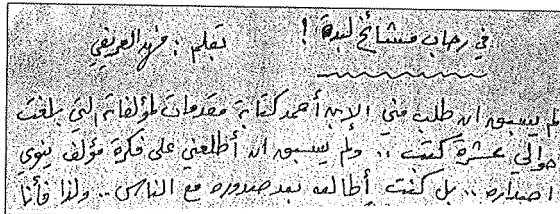 في رحاب مشائخ لبدة ! بقلم :
لم يسبق ان طلب مني الابن أحمد كتابة مقدمات لمؤلفاته التي بلغت
حوالي عشرة كتب .. ولم يسبق ان أطلعني على فكرة مؤلف ينوي
اصداره .. بل كنت أطالعه بعد صدوره مع الناس .. ولذا فأنا